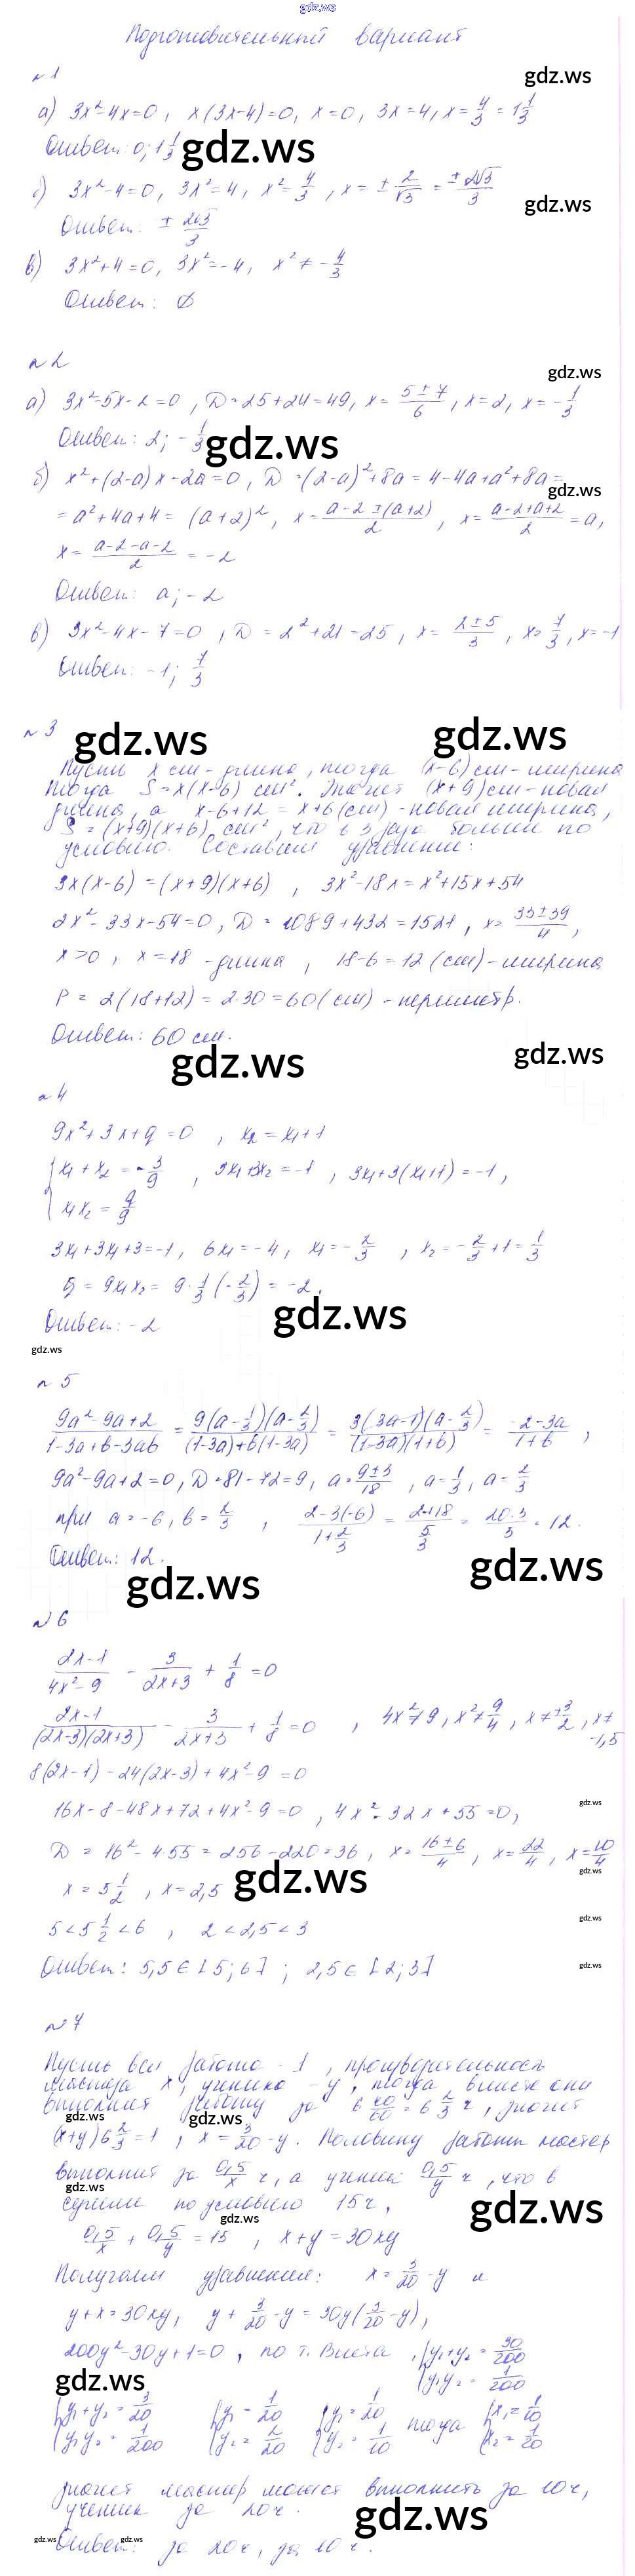 gdz.ws
Подготовительный вариант
№1
gdz.ws
а) 3x²-4x=0, x(3x-4)=0, x=0, 3x=4, x=4/3=1 1/3
Ответ: 0; 1 1/3
gdz.ws
б) 3x²-4=0, 3x²=4, x²=4/3, x=±2/√3=±2√3/3
gdz.ws
Ответ: ±2√3/3
в) 3x²+4=0, 3x²=-4, x²≠-4/3
Ответ: ∅
№2
gdz.ws
а) 3x²-5x-2=0, D=25+24=49, x=(5±7)/6, x=2, x=-1/3
Ответ: 2; -1/3
gdz.ws
б) x²+(2-a)x-2a=0, D=(2-a)²+8a=4-4a+a²+8a=
gdz.ws
=a²+4a+4=(a+2)², x=(a-2±(a+2))/2, x=(a-2+a+2)/2=a,
x=(a-2-a-2)/2=-2
Ответ: a; -2
в) 3x²-4x-7=0, D=2²+21=25, x=(2±5)/3, x=7/3, x=-1
Ответ: -1; 7/3
№3
gdz.ws
gdz.ws
Пусть x см - длина, тогда (x-6) см - ширина
Тогда S=x(x-6) см². Значит (x+9) см - новая
длина, а x-6+12=x+6 (см) - новая ширина,
S=(x+9)(x+6) см², что в 3 раза больше по
условию. Составим уравнение:
3x(x-6)=(x+9)(x+6), 3x²-18x=x²+15x+54
2x²-33x-54=0, D=1089+432=1521, x=(33±39)/4,
x>0, x=18 - длина, 18-6=12 (см) - ширина
P=2(18+12)=2·30=60 (см) - периметр.
Ответ: 60 см.
gdz.ws
gdz.ws
№4
9x²+3x+q=0, x₂=x₁+1
{x₁+x₂=-3/9, 3x₁+3x₂=-1, 3x₁+3(x₁+1)=-1,
x₁x₂=q/9
3x₁+3x₁+3=-1, 6x₁=-4, x₁=-2/3, x₂=-2/3+1=1/3
q=9x₁x₂=9·1/3(-2/3)=-2.
gdz.ws
Ответ: -2
gdz.ws
№5
(9a²-9a+2)/(1-3a+b-3ab)=9(a-1/3)(a-2/3)/((1-3a)+b(1-3a))=3(3a-1)(a-2/3)/((1-3a)(1+b))=(2-3a)/(1+b),
9a²-9a+2=0, D=81-72=9, a=(9±3)/18, a=1/3, a=2/3
при a=-6, b=2/3, (2-3(-6))/(1+2/3)=(2+18)/(5/3)=20·3/5=12.
Ответ: 12.
gdz.ws
gdz.ws
№6
(2x-1)/(4x²-9) - 3/(2x+3) + 1/8=0
(2x-1)/((2x-3)(2x+3)) - 3/(2x+3) + 1/8=0, 4x²≠9, x²≠9/4, x≠±3/2, x≠-1,5
8(2x-1)-24(2x-3)+4x²-9=0
16x-8-48x+72+4x²-9=0, 4x²-32x+55=0,
gdz.ws
D=16²-4·55=256-220=36, x=(16±6)/4, x=22/4, x=10/4
gdz.ws
x=5 1/2, x=2,5
gdz.ws
5<5 1/2<6, 2<2,5<3
gdz.ws
Ответ: 5,5∈[5;6]; 2,5∈[2;3]
gdz.ws
№7
Пусть вся работа - 1, производительность
мастера x, ученика - y, тогда вместе они
выполнят работу за 6 40/60=6 2/3 ч, значит
gdz.ws
gdz.ws
(x+y)6 2/3=1, x=3/20-y. Половину работы мастер
выполнит за 0,5/x ч, а ученик 0,5/y ч, что в
gdz.ws
сумме по условию 15 ч,
gdz.ws
gdz.ws
0,5/x+0,5/y=15, x+y=30xy
Получаем уравнения: x=3/20-y и
y+x=30xy, y+3/20-y=30y(3/20-y),
200y²-30y+1=0, по т. Виета, {y₁+y₂=30/200
y₁y₂=1/200
gdz.ws
{y₁+y₂=3/20 {y₁=1/20 {y₁=1/20 тогда {x₁=1/10
y₁y₂=1/200 y₂=2/20 y₂=1/10 x₂=1/20
значит мастер может выполнить за 10 ч,
ученик за 20 ч.
gdz.ws
gdz.ws
gdz.ws
Ответ: за 20 ч, за 10 ч.